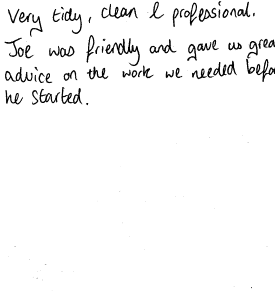 Very tidy, clean & professional.
Joe was friendly and gave us grea
advice on the work we needed befo
he started.